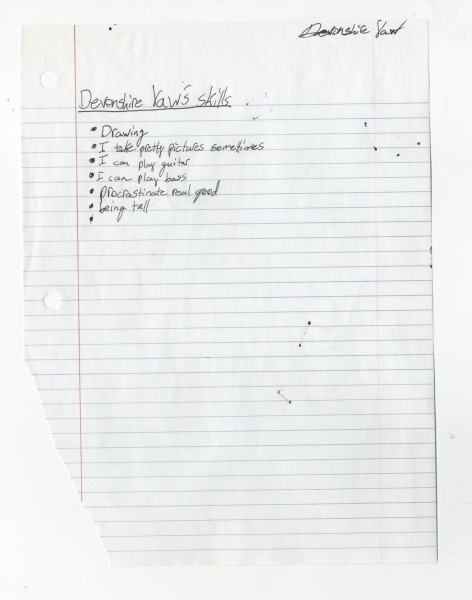 Devonshire Yaw
Devonshire Yaw's skills
• Drawing
• I take pretty pictures sometimes
• I can play guitar
• I can play bass
• procrastinate real good
• being tall
•